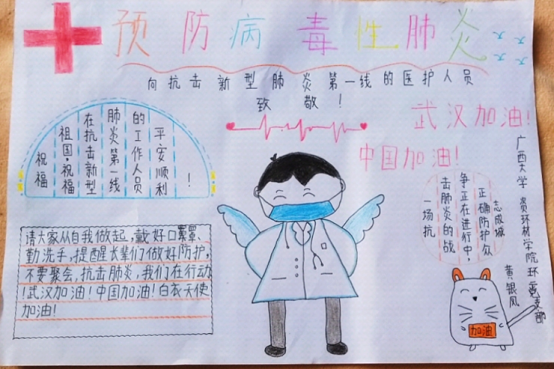 预防病毒性肺炎
向抗击新型肺炎第一线的医护人员
致敬！
武汉加油！
中国加油！
祝福
祖国，祝福
在抗击新型
肺炎第一线
的工作人员
平安顺利
！
请大家从自我做起，戴好口罩，
勤洗手，提醒长辈们做好防护，
不要聚会，抗击肺炎，我们在行动
！武汉加油！中国加油！白衣天使
加油！
一场抗
击肺炎的战
争正在进行中，
正确防护众
志成城
广西大学 资环材学院
黄银凤
加油